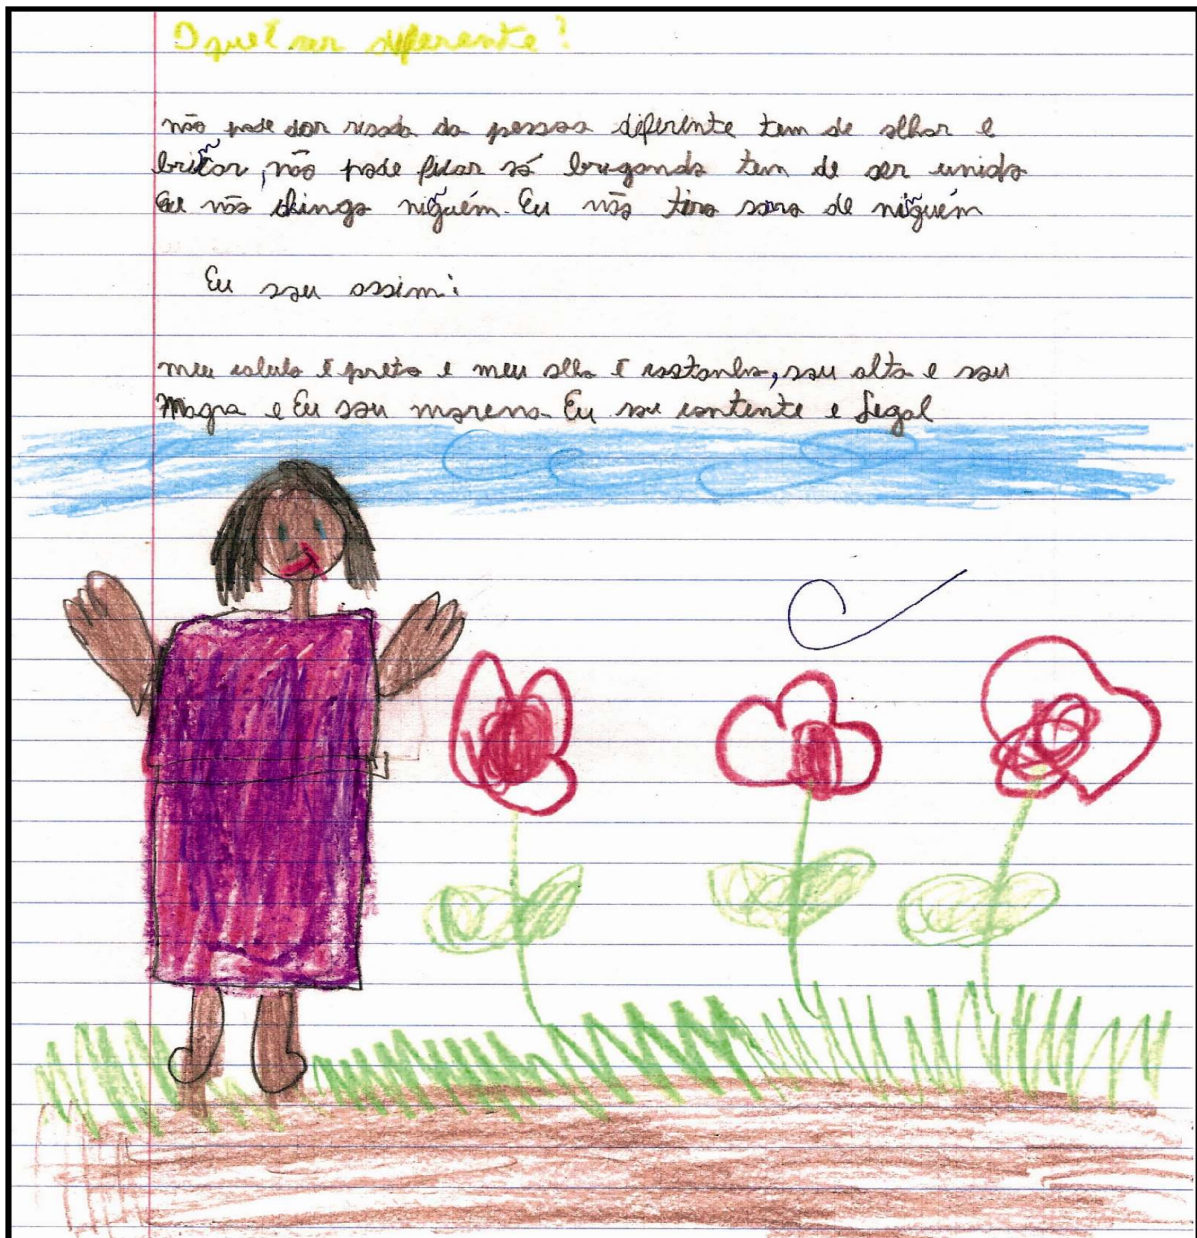 O quê ser diferente?
não pode dar risada da pessoa diferente tem de olhar e
briñar, não pode ficar só brigando tem de ser unido
Eu não chingo niguém. Eu não tiro sarro de niguém
Eu sou assim:
meu cabelo é preto e meu olho é castanho, sou alta e sou
Magra e Eu sou morena. Eu sou contente e legal